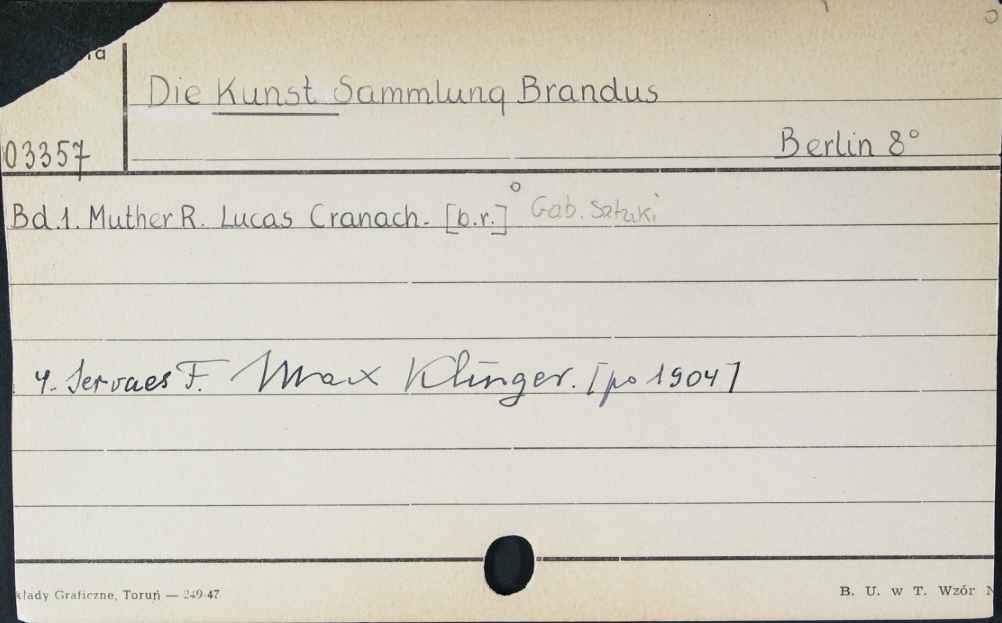 Die Kunst Sammlung Brandus
Berlin 8°
03357
Bd.1. Muther R. Lucas Cranach. [b.r.]° Gab. Sztuki
4. Servaes F. Max Klinger. [po 1904]
kłady Graficzne, Toruń — 249-47
B. U. w T. Wzór N